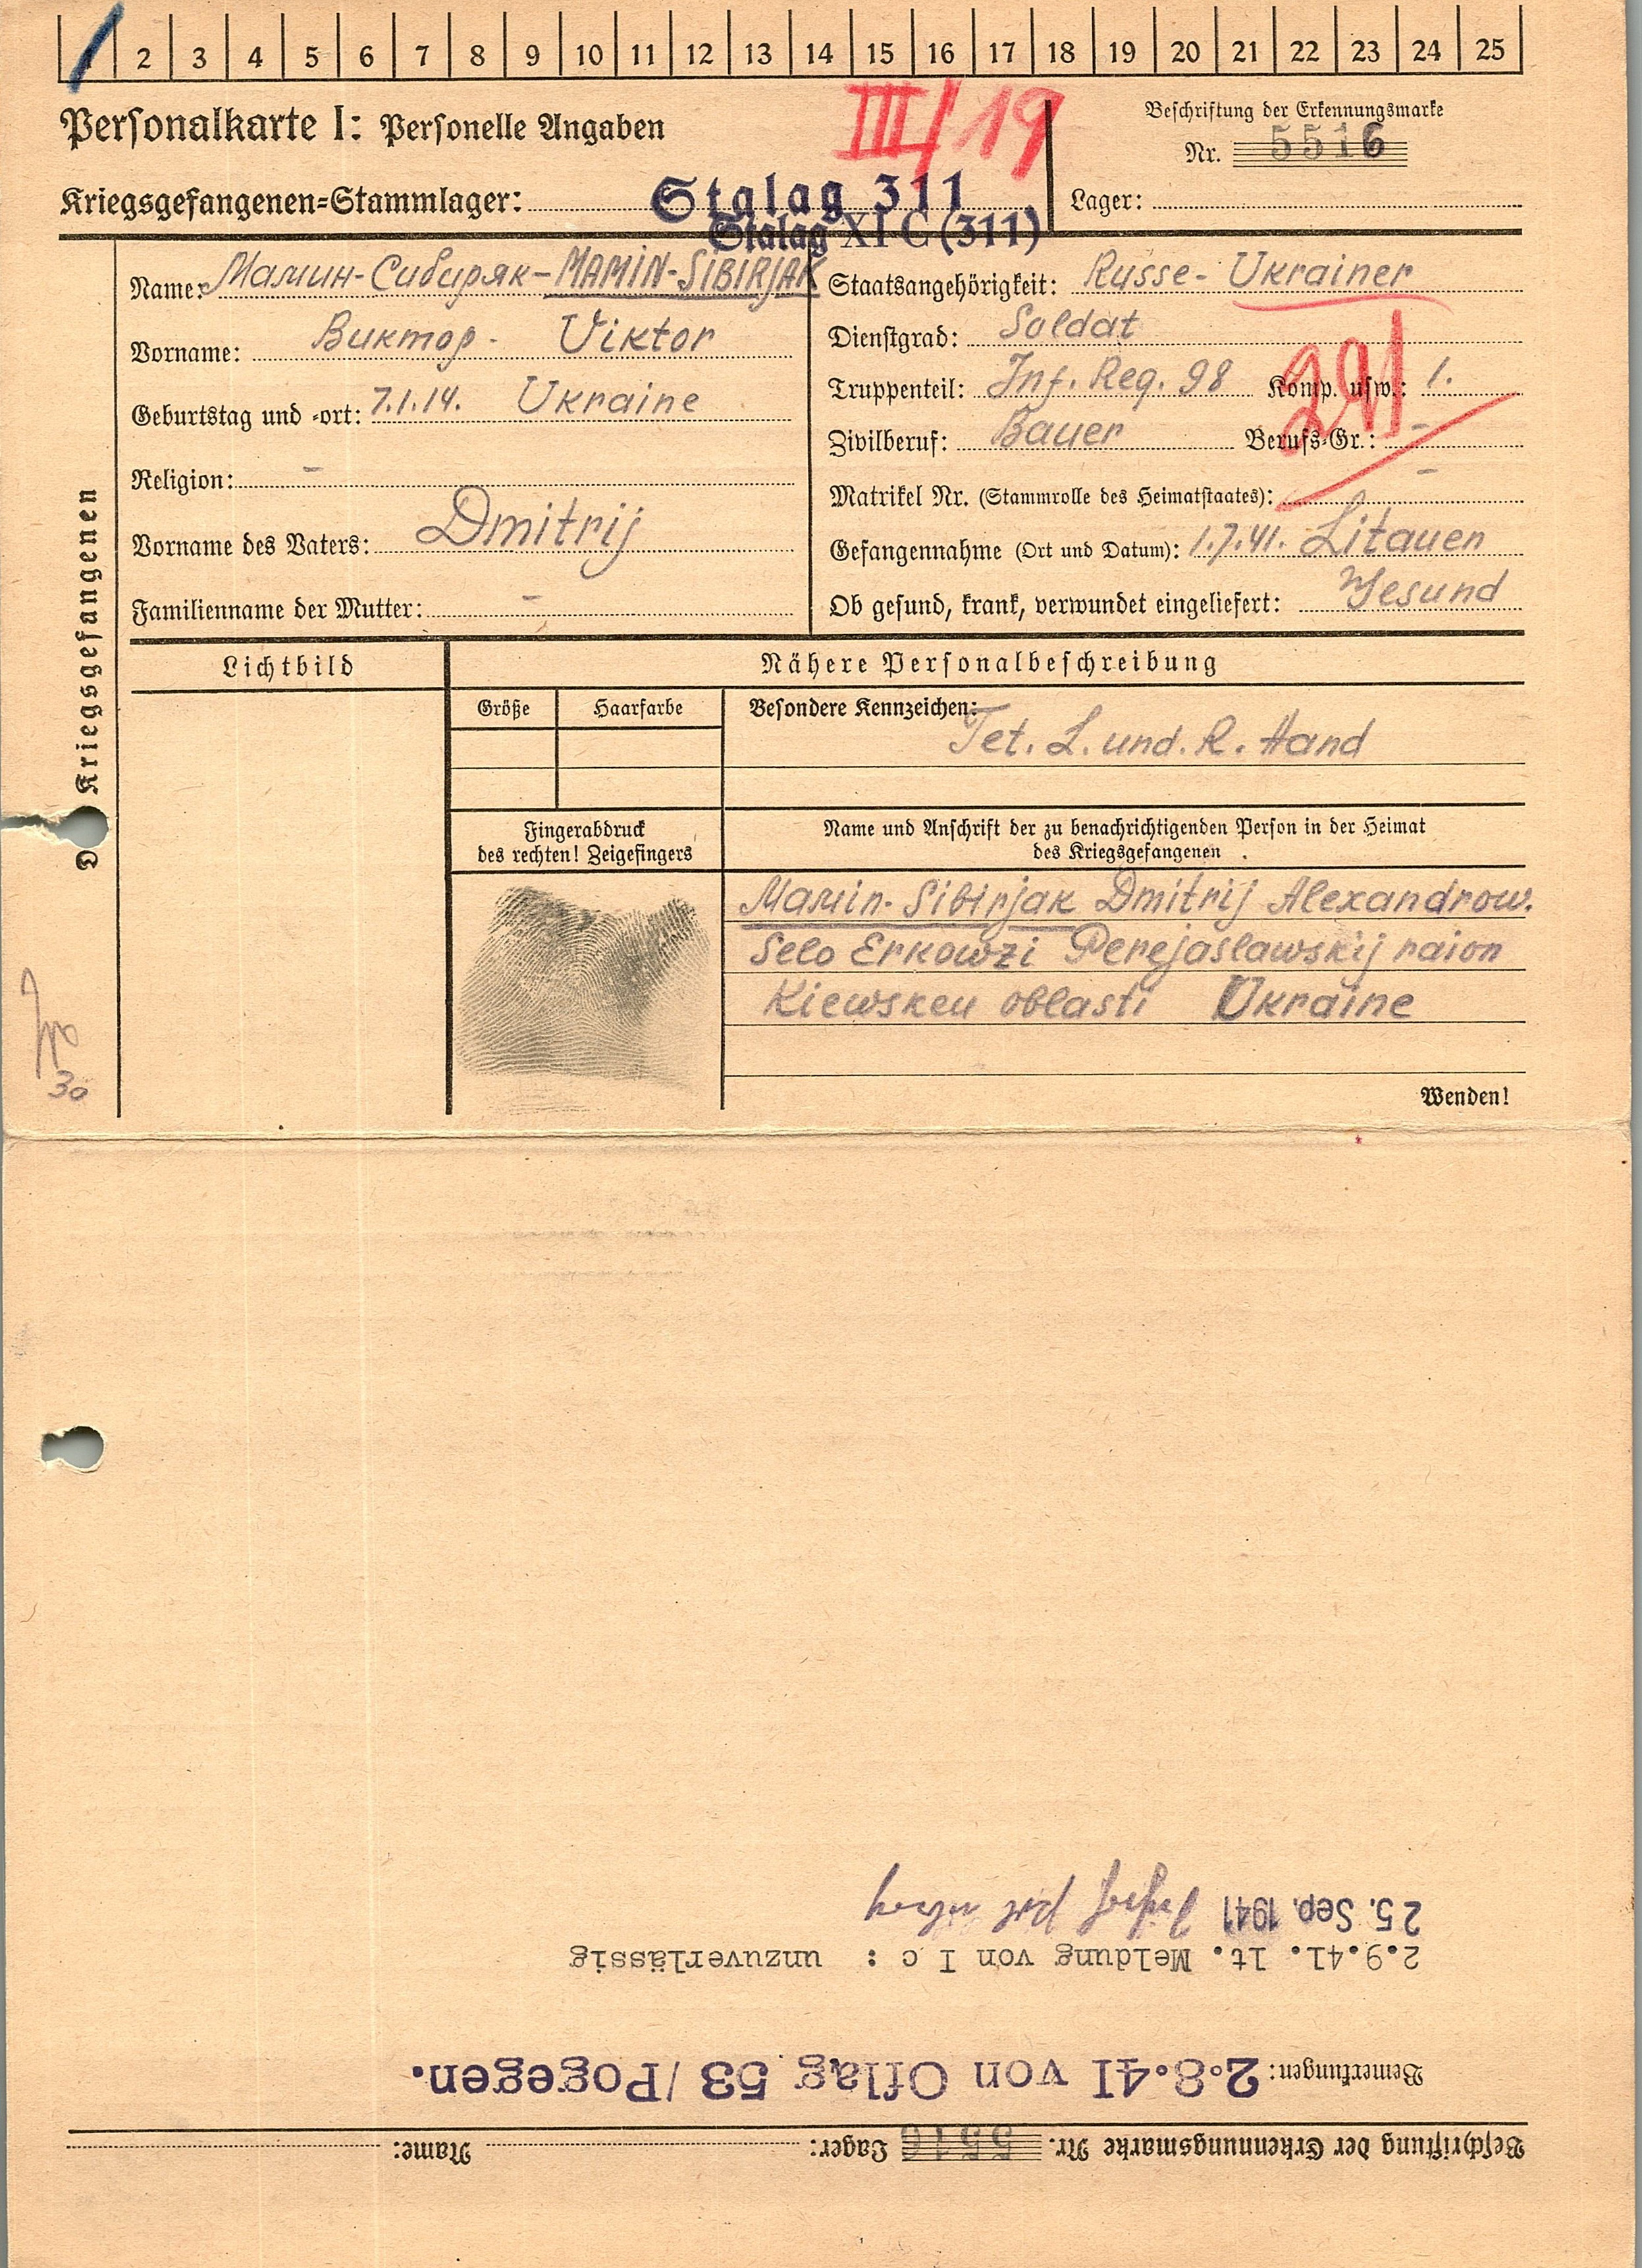 2 3 4 5 6 7 8 9 10 11 12 13 14 15 16 17 18 19 20 21 22 23 24 25
Personalkarte I: Personelle Angaben
III/19
Beschriftung der Erkennungsmarke
Nr. 5516
Kriegsgefangenen-Stammlager: Stalag 311
Stalag XI C (311)
Lager:
Des Kriegsgefangenen
Name: Мамин-Сибиряк-MAMIN-SIBIRJAK
Vorname: Виктор - Viktor
Geburtstag und -ort: 7.1.14. Ukraine
Religion: -
Vorname des Vaters: Dmitrij
Familienname der Mutter: -
Staatsangehörigkeit: Russe- Ukrainer
Dienstgrad: Soldat
Truppenteil: Inf. Reg. 98 Komp. usw.: 1.
291
Zivilberuf: Bauer Berufs-Gr.: -
Matrikel Nr. (Stammrolle des Heimatstaates): -
Gefangennahme (Ort und Datum): 1.7.41. Litauen
Ob gesund, krank, verwundet eingeliefert: Gesund
Lichtbild
Nähere Personalbeschreibung
Größe Haarfarbe
Besondere Kennzeichen:
Tet. L. und. R. Hand
Fingerabdruck
des rechten! Zeigefingers
Name und Anschrift der zu benachrichtigenden Person in der Heimat
des Kriegsgefangenen
Mamin-Sibirjak Dmitrij Alexandrow.
Selo Erkowzi Perejaslawskij raion
Kiewskeu oblasti Ukraine
30
Wenden!
Beschriftung der Erkennungsmarke Nr. 5516 Lager: Name:
Bemerkungen: 2.8.41 von Oflag 53/Pogegen.
2.9.41. lt. Meldung von I c : unzuverlässig
25. Sep. 1941